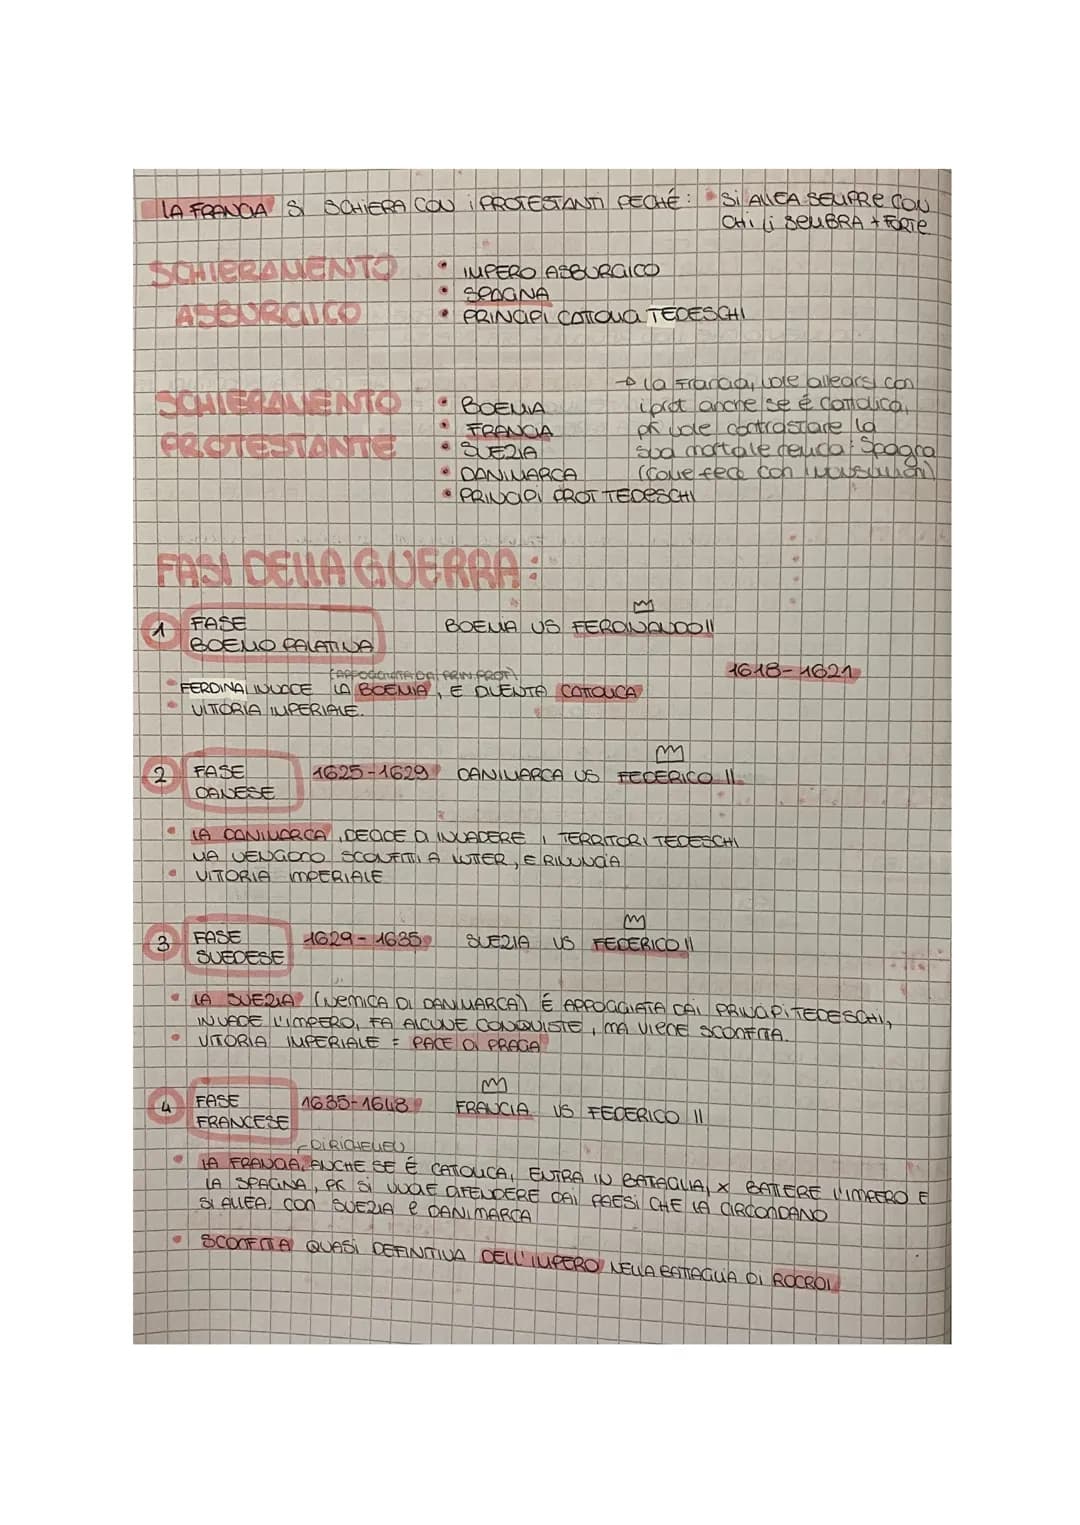 LA FRANCIA SI SCHIERA CON i PROTESTANTI PECHÉ: • Si ALLEA SEMPRE CON
CHI Li SEMBRA + FORTE
SCHIERAMENTO
ASBURGICO
• IMPERO ASBURGICO
• SPAGNA
• PRINCIPI CATTOLICI TEDESCHI
SCHIERAMENTO
PROTESTANTE
• BOEMIA
• FRANCIA
• SVEZIA
• DANIMARCA
• PRINCIPI PROT TEDESCHI
→ la Francia, vole allears con
i prot anche se é cattolica,
pk vole contrastare la
sua mortale nemica: Spagna
(come fece con i musulmani)
FASI DELLA GUERRA:
1 FASE
BOEMO PALATINA
BOEMIA VS FERDINANDO II
1618-1621
(APPOGGIATA DAI PRIN.PROT)
• FERDINA INVADE LA BOEMIA, E DIVENTA CATTOLICA
• VITTORIA IMPERIALE.
2 FASE
DANESE
1625-1629 DANIMARCA VS FEDERICO II
• LA DANIMARCA, DECIDE DI INVADERE I TERRITORI TEDESCHI
MA VENGODO SCONFITTI A LUTER, E RINUNCIA
• VITTORIA IMPERIALE
3 FASE
SVEDESE
1629-1635 SVEZIA VS FEDERICO II
• LA SVEZIA (NEMICA DI DANIMARCA) É APPOGGIATA DAI PRINCIPI TEDESCHI,
INVADE L'IMPERO, FA ALCUNE CONQUISTE, MA VIENE SCONFITTA.
• VITTORIA IMPERIALE = PACE DI PRAGA
4 FASE
FRANCESE
1635-1648 FRANCIA VS FEDERICO II
DI RICHELIEU
• LA FRANCIA, ANCHE SE É CATTOLICA, ENTRA IN BATTAGLIA, X BATTERE L'IMPERO E
LA SPAGNA, PK SI VUOLE DIFENDERE DAI PAESI CHE LA CIRCONDANO
SI ALLEA CON SVEZIA e DANIMARCA
• SCONFITTA QUASI DEFINITIVA DELL'IMPERO NELLA BATTAGLIA DI ROCROI